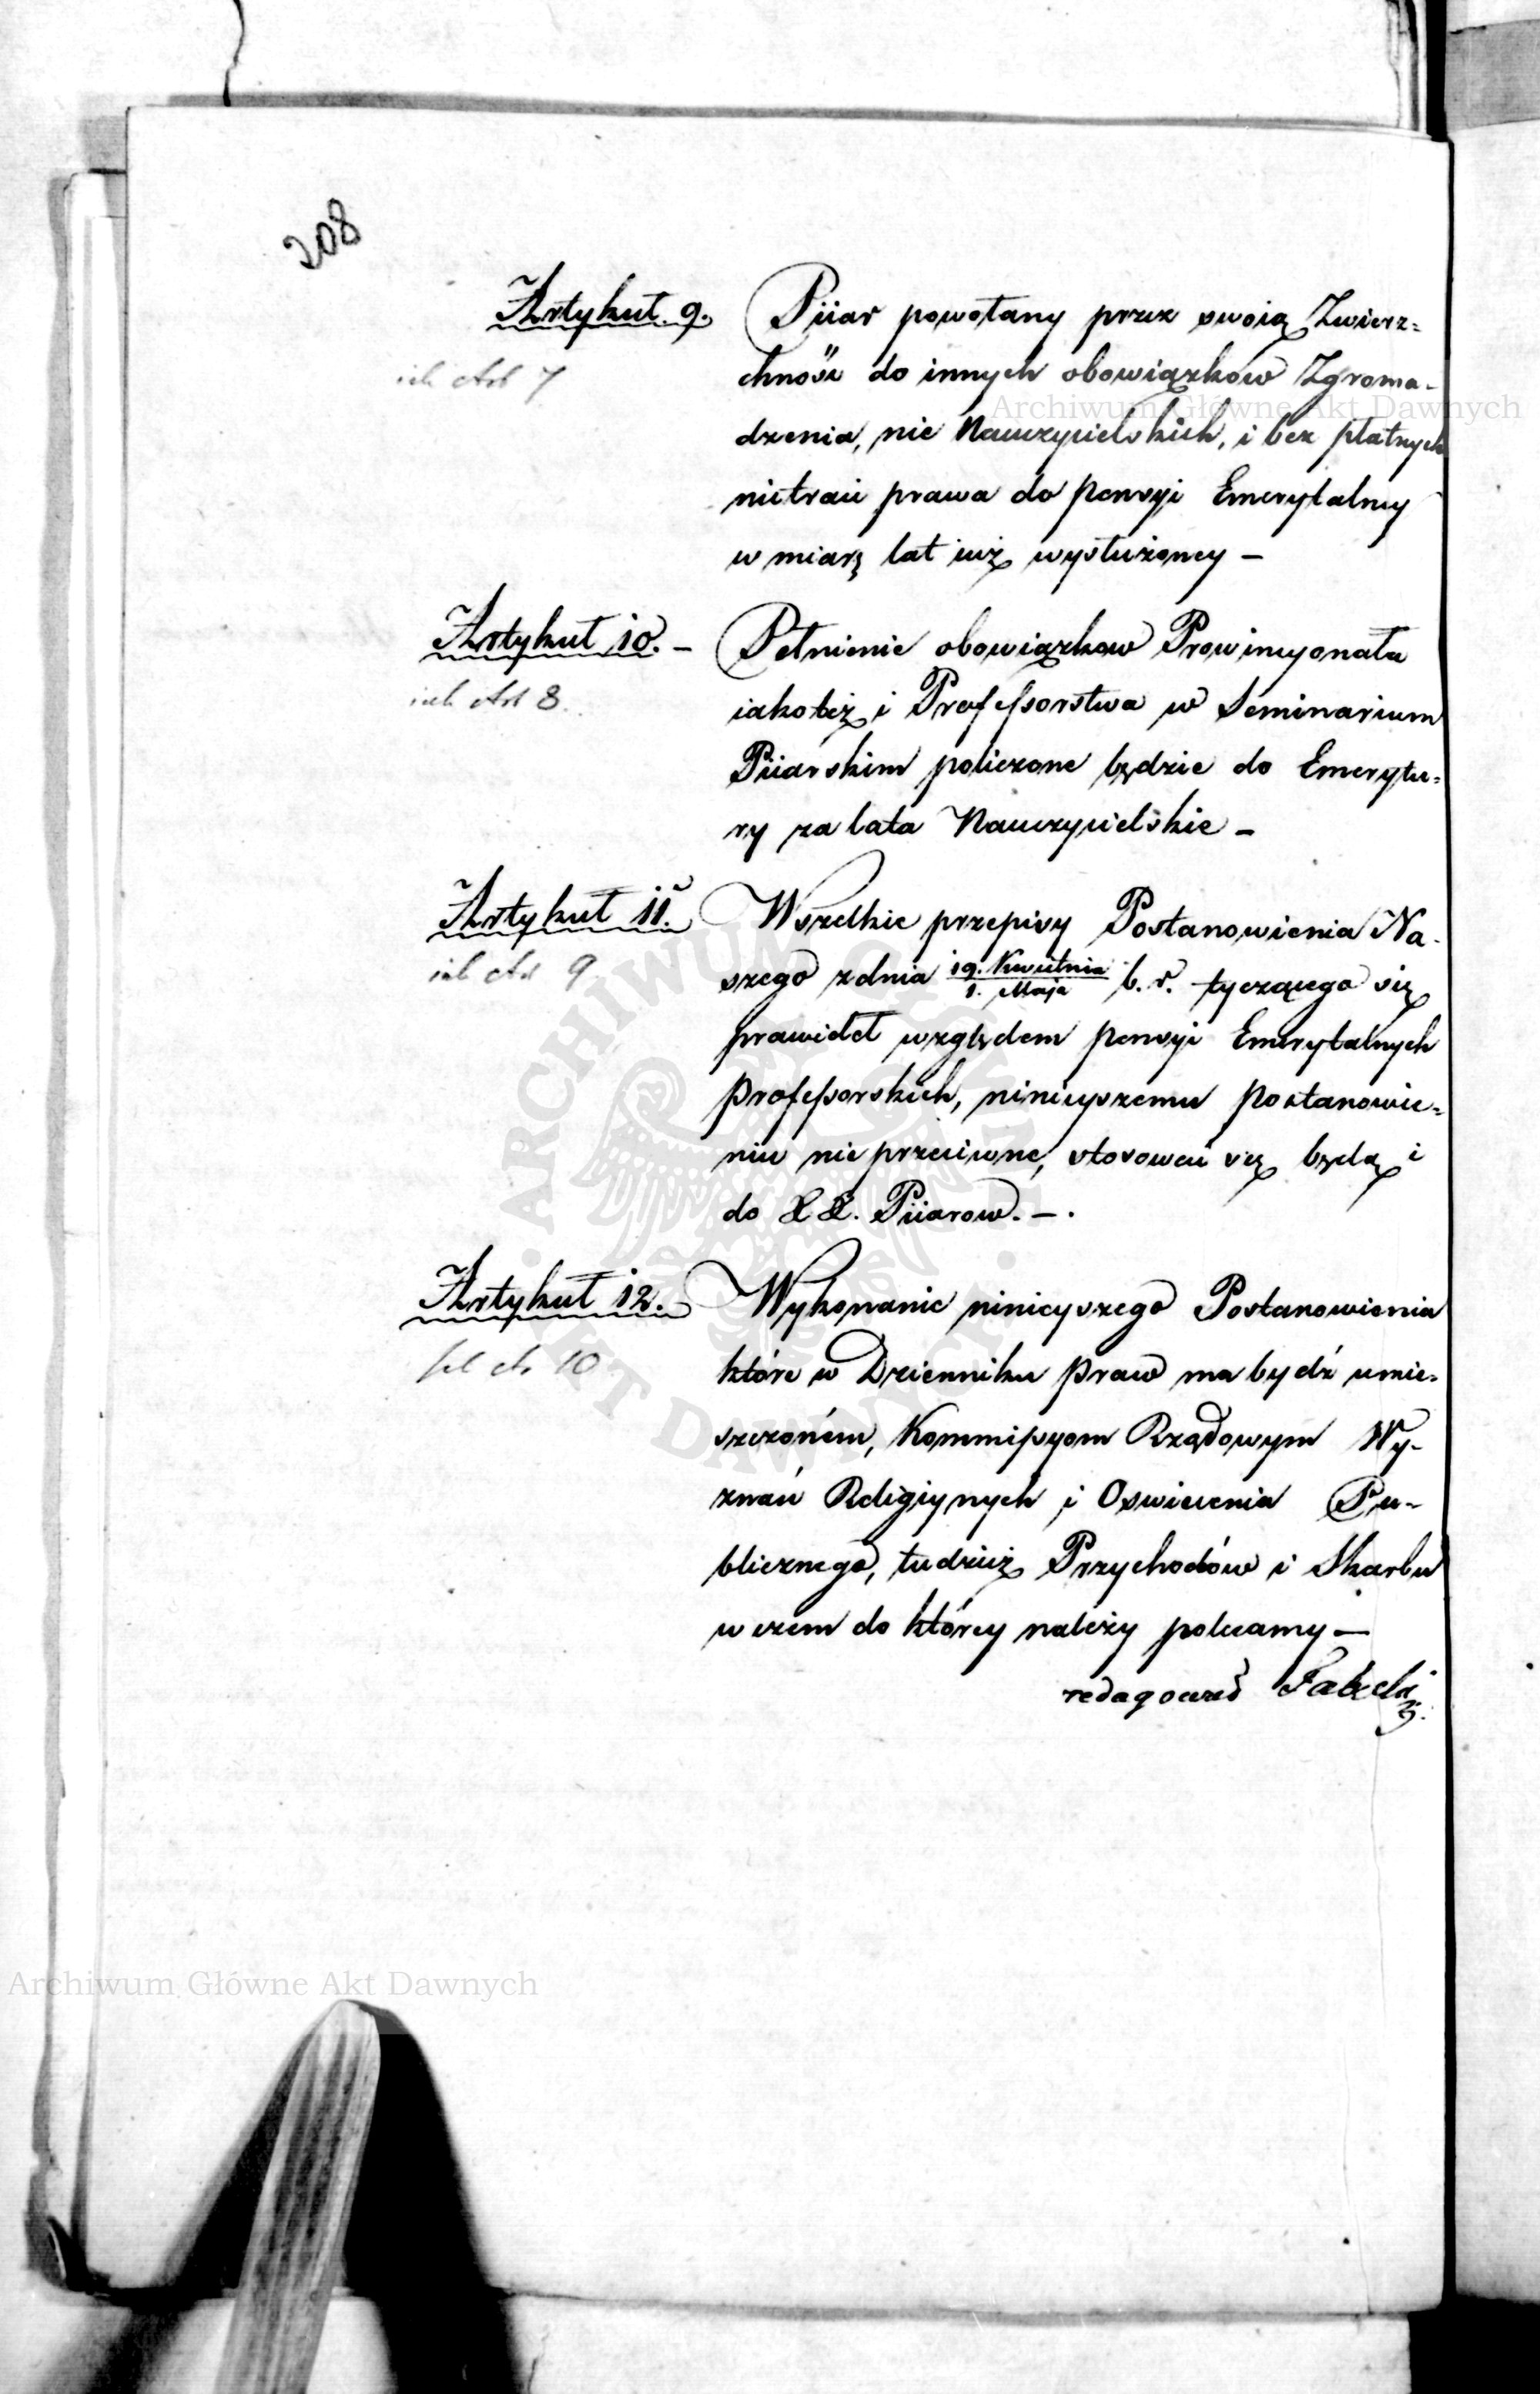 208
Artykuł 9. Piiar powołany przez swoią Zwierz=
Art 7
chność do innych obowiązków Zgroma-
dzenia, nie Nauczycielskich, i bez płatnych
nietraci prawa do pensyi Emerytalney
w miarę lat iuż wysłużoney —
Artykuł 10. — Pełnienie obowiązkow Prowincyonała
Art 8.
iakoteż i Professorstwa w Seminarium
Piiarskim policzone będzie do Emerytu=
ry za lata Nauczycielskie —
Artykuł 11. Wszelkie przepisy Postanowienia Na-
9
szego z dnia 19. Kwietnia / 1. Maja b. r. tyczącego się
prawideł względem pensyi Emerytalnych
Professorskich, ninieyszemu postanowie=
niu nie przeciwne, stosować się będą i
do XX. Piiarow. — .
Artykuł 12. Wykonanie ninieyszego Postanowienia
10
które w Dzienniku Praw ma bydź umie=
szczoném, Kommissyom Rządowym Wy-
znań Religiynych i Oswiecenia Pu-
blicznego, tudzież Przychodów i Skarbu
w czem do którey należy polecamy —
redagował
Archiwum Główne Akt Dawnych
Archiwum Główne Akt Dawnych
ARCHIWUM GŁÓWNE AKT DAWNYCH